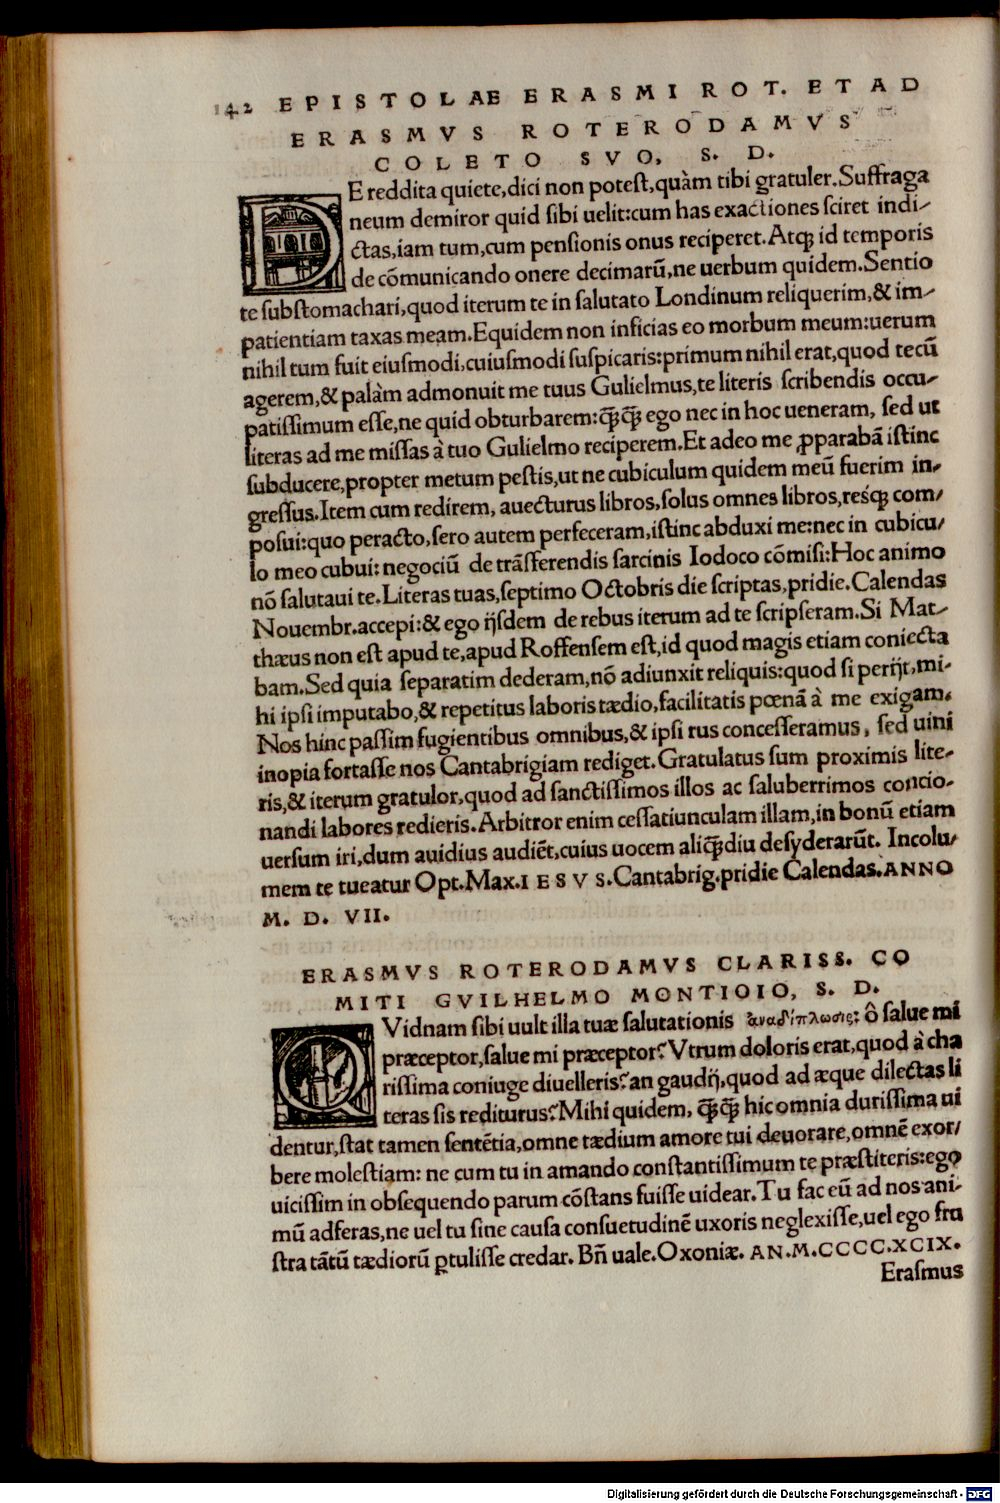 142 EPISTOLAE ERASMI ROT. ET AD
ERASMVS ROTERODAMVS
COLETO SVO, S. D.
DE reddita quiete,dici non potest,quàm tibi gratuler.Suffraga
neum demiror quid sibi uelit:cum has exactiones sciret indi-
ctas,iam tum,cum pensionis onus reciperet.Atq; id temporis
de cõmunicando onere decimarũ,ne uerbum quidem.Sentio
te substomachari,quod iterum te in salutato Londinum reliquerim,& im-
patientiam taxas meam.Equidem non inficias eo morbum meum:uerum
nihil tum fuit eiusmodi,cuiusmodi suspicaris:primum nihil erat,quod tecũ
agerem,& palàm admonuit me tuus Gulielmus,te literis scribendis occu-
patissimum esse,ne quid obturbarem:q̃q̃ ego nec in hoc ueneram, sed ut
literas ad me missas à tuo Gulielmo reciperem.Et adeo me ꝓparabã istinc
subducere,propter metum pestis,ut ne cubiculum quidem meũ fuerim in-
gressus.Item cum redirem, auecturus libros,solus omnes libros,resq́; com-
posui:quo peracto,sero autem perfeceram,istinc abduxi me:nec in cubicu-
lo meo cubui: negociũ de trãsferendis sarcinis Iodoco cõmisi:Hoc animo
nõ salutaui te.Literas tuas,septimo Octobris die scriptas,pridie.Calendas
Nouembr.accepi:& ego ijsdem de rebus iterum ad te scripseram.Si Mat-
thæus non est apud te,apud Roffensem est,id quod magis etiam coniecta
bam.Sed quia separatim dederam,nõ adiunxit reliquis:quod si perijt,mi-
hi ipsi imputabo,& repetitus laboris tædio,facilitatis pœnã à me exigam.
Nos hinc passim fugientibus omnibus,& ipsi rus concesseramus, sed uini
inopia fortasse nos Cantabrigiam rediget.Gratulatus sum proximis lite-
ris,& iterum gratulor,quod ad sanctissimos illos ac saluberrimos concio-
nandi labores redieris.Arbitror enim cessatiunculam illam,in bonũ etiam
uersum iri,dum auidius audiẽt,cuius uocem aliq̃diu desyderarũt. Incolu-
mem te tueatur Opt.Max.IESVS.Cantabrig.pridie Calendas.ANNO
M. D. VII.
ERASMVS ROTERODAMVS CLARISS. CO
MITI GVILHELMO MONTIOIO, S. D.
QVidnam sibi uult illa tuæ salutationis ἀναδίπλωσις: ô salue mi
præceptor,salue mi præceptor? Vtrum doloris erat,quod à cha
rissima coniuge diuelleris? an gaudij,quod ad æque dilectas li
teras sis rediturus? Mihi quidem, q̃q̃ hic omnia durissima ui
dentur,stat tamen sentẽtia,omne tædium amore tui deuorare,omnẽ exor-
bere molestiam: ne cum tu in amando constantissimum te præstiteris:ego
uicissim in obsequendo parum cõstans fuisse uidear.Tu fac eũ ad nos ani-
mũ adferas,ne uel tu sine causa consuetudinẽ uxoris neglexisse,uel ego fru
stra tãtũ tædiorũ ꝑtulisse credar. Bñ uale.Oxoniæ. AN.M.CCCC.XCIX.
Erasmus
Digitalisierung gefördert durch die Deutsche Forschungsgemeinschaft - DFG